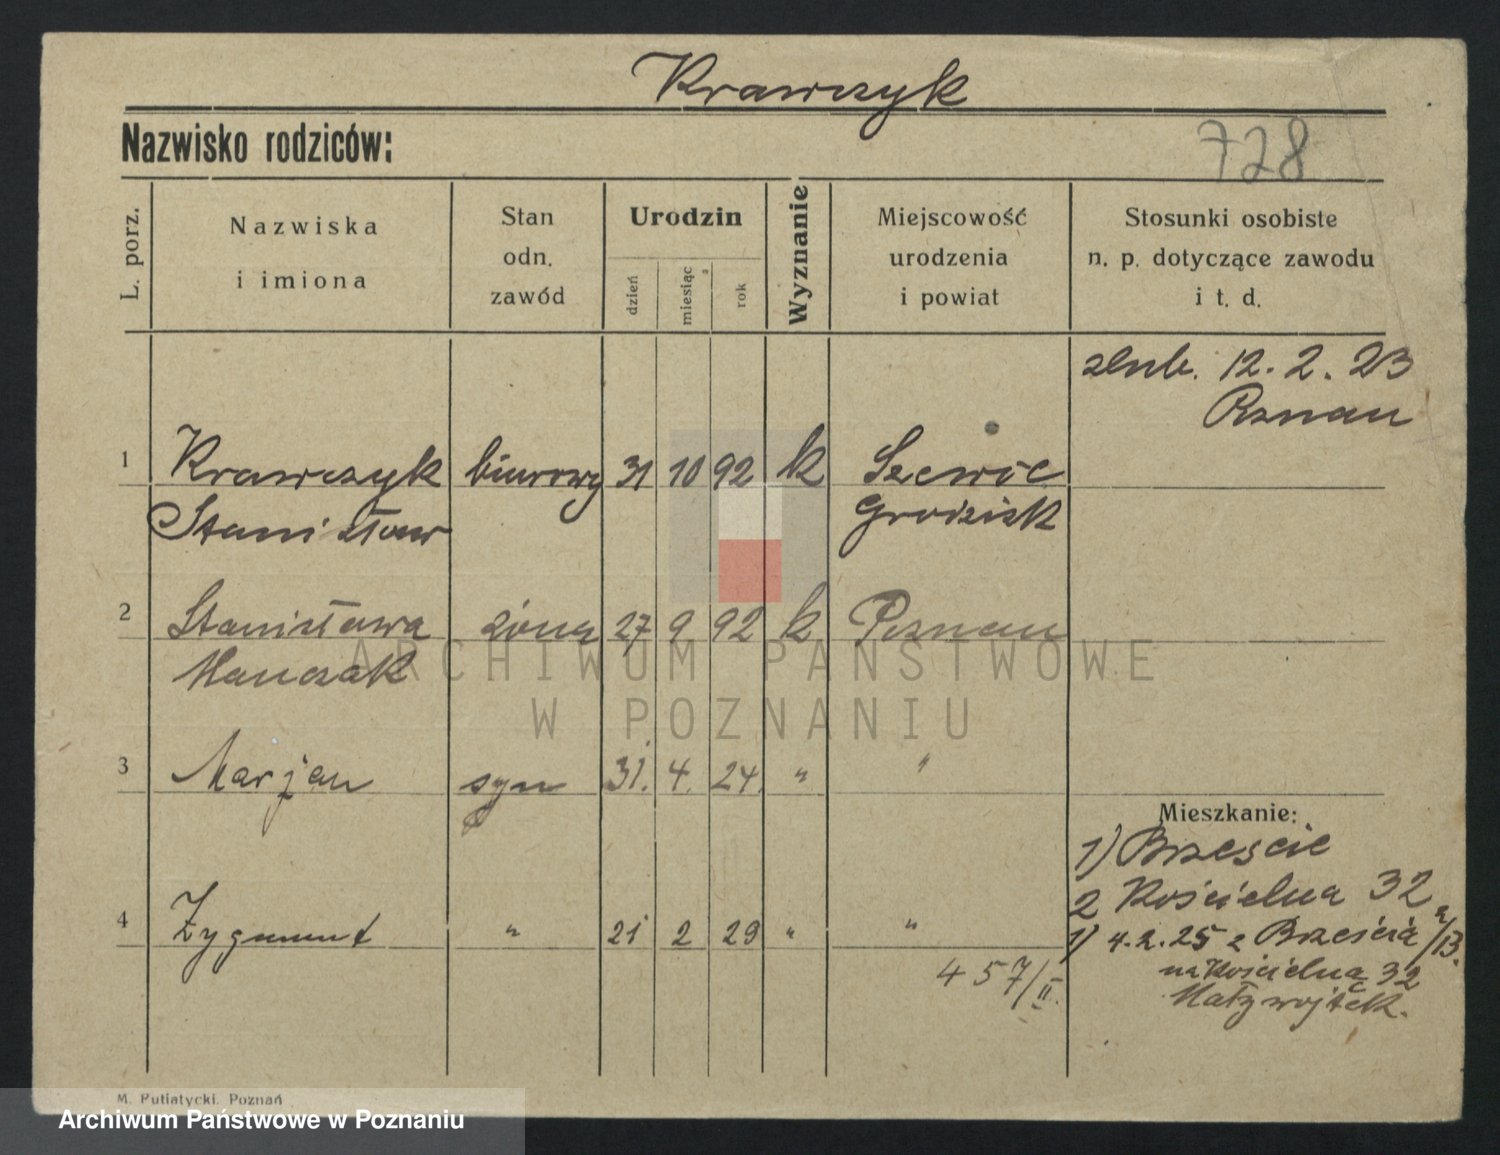 Krawczyk
Nazwisko rodziców:
728
L. porz.
Nazwiska
i imiona
Stan
odn.
zawód
Urodzin
dzień
miesiąc
rok
Wyznanie
Miejscowość
urodzenia
i powiat
Stosunki osobiste
n. p. dotyczące zawodu
i t. d.
ślub. 12. 2. 23
Poznan
1 Krawczyk biurowy 31 10 92 k Szewce
Stanisław Grodzisk
2 Stanisława żona 27 9 92 k Poznan
Hanczak
3 Marjan syn 31. 4. 24. " "
Mieszkanie:
1) Brzescie
2 Kościelna 32
4 Zygmunt " 21 2 29 " "
1) 4.2.25 z Brzeskia a/B.
na Kościelną 32
457/II.
M. Putiatycki. Poznań
ARCHIWUM PAŃSTWOWE
W POZNANIU
Archiwum Państwowe w Poznaniu